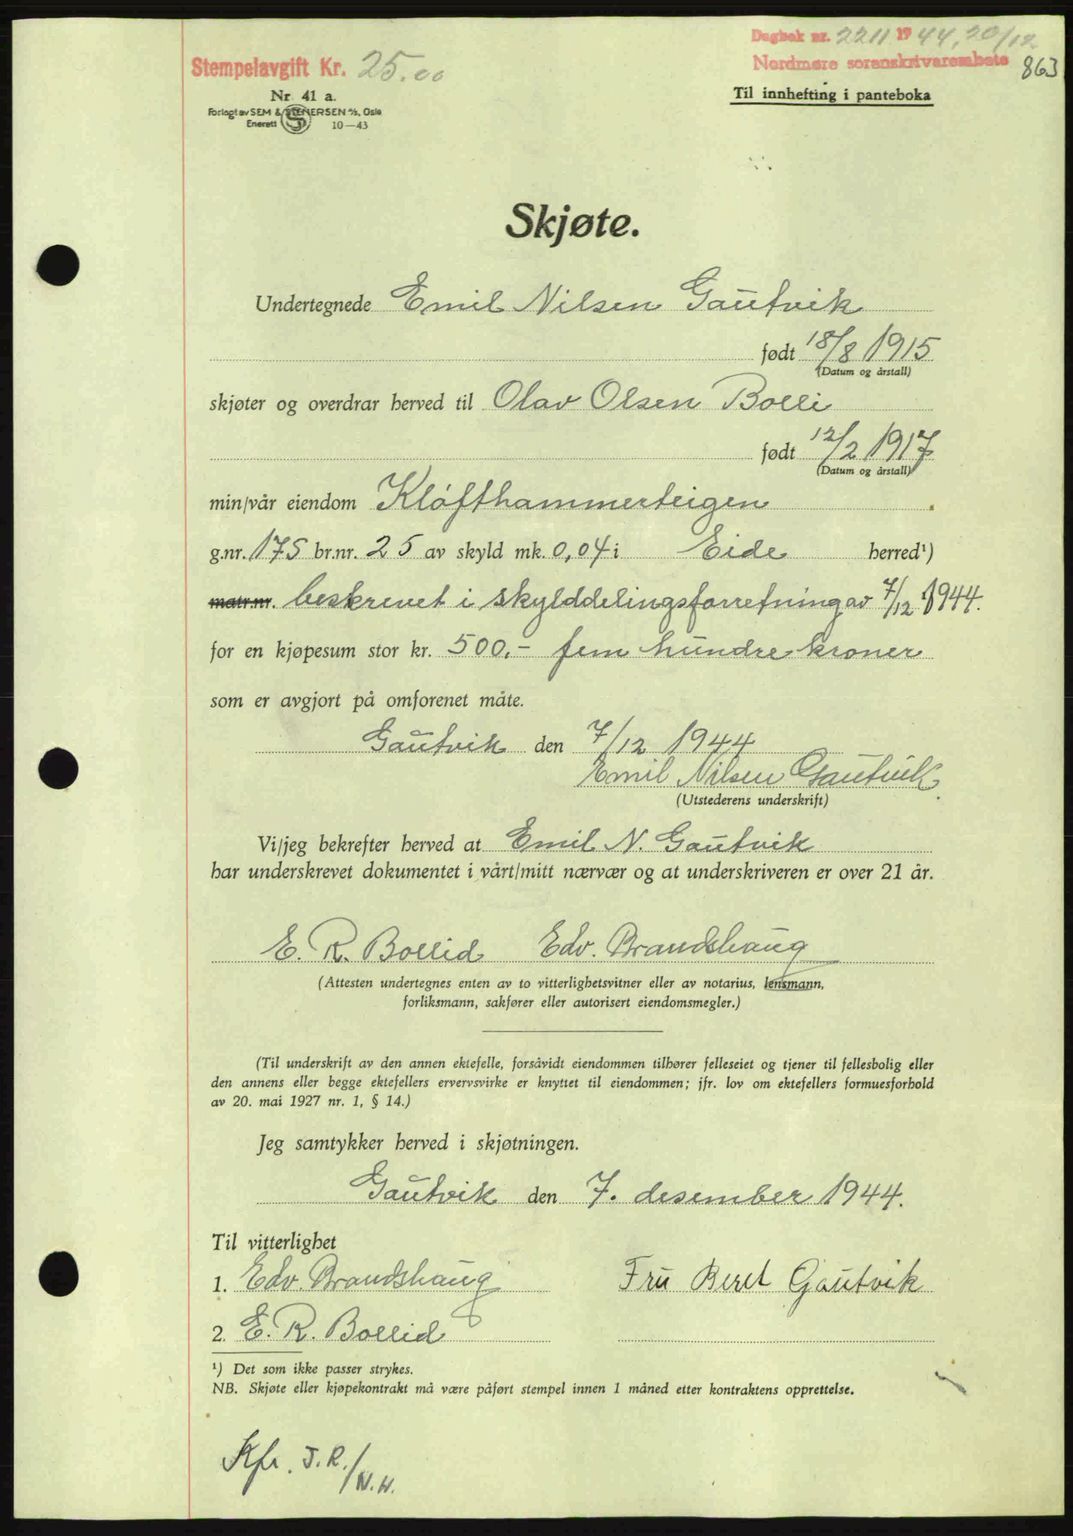 Dagbok nr. 2211 1944, 20/12
Stempelavgift Kr. 25.00
Nordmøre sorenskriverembete 863
Nr. 41 a.
Til innhefting i panteboka
Forlagt av SEM & STENERSEN A/S, Oslo
Enerett S 10—43
Skjøte.
Undertegnede Emil Nilsen Gautvik
født 18/8 1915
(Datum og årstall)
skjøter og overdrar herved til Olav Olsen Bolli
født 12/2 1917
(Datum og årstall)
min/vår eiendom Kløfthammerteigen
g.nr. 175 br.nr. 25 av skyld mk. 0,04 i Eide herred¹)
matr.nr. beskrevet i skylddelingsforretning av 7/12 1944.
for en kjøpesum stor kr. 500.- fem hundre kroner
som er avgjort på omforenet måte.
Gautvik den 7/12 1944
Emil Nilsen Gautvik
(Utstederens underskrift)
Vi/jeg bekrefter herved at Emil N. Gautvik
har underskrevet dokumentet i vårt/mitt nærvær og at underskriveren er over 21 år.
E. R. Bollid Edv. Brandshaug
(Attesten undertegnes enten av to vitterlighetsvitner eller av notarius, lensmann,
forliksmann, sakfører eller autorisert eiendomsmegler.)
(Til underskrift av den annen ektefelle, forsåvidt eiendommen tilhører felleseiet og tjener til fellesbolig eller
den annens eller begge ektefellers ervervsvirke er knyttet til eiendommen; jfr. lov om ektefellers formuesforhold
av 20. mai 1927 nr. 1, § 14.)
Jeg samtykker herved i skjøtningen.
Gautvik den 7. desember 1944.
Til vitterlighet
1. Edv. Brandshaug Fru Beret Gautvik
2. E. R. Bollid
¹) Det som ikke passer strykes.
NB. Skjøte eller kjøpekontrakt må være påført stempel innen 1 måned etter kontraktens opprettelse.
Kfr. J.R./N.H.